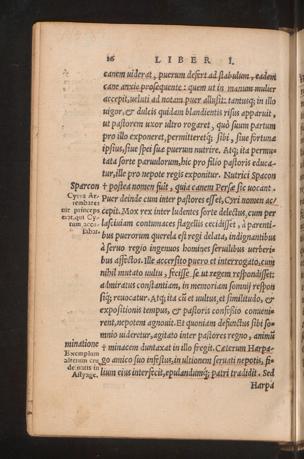 16 LIBER I.
canem uiderat, puerum desert ad stabulum, eadem
cane anxie prosequente: quem ut in manum mulier
accepit, ueluti ad notam puer allusit: tantusq; in illo
uigor, & dulcis quidam blandientis risus apparuit,
ut pastorem uxor ultro rogaret, quò suum partum
pro illo exponeret, permitteretq; sibi, siue fortunæ
ipsius, siue spei suæ puerum nutrire. Atq; ita permu-
tata sorte paruulorum, hic pro filio pastoris educa-
tur, ille pro nepote regis exponitur. Nutrici Spacon
Sparcon † postea nomen fuit, quia canem Persæ sic uocant.
Puer deinde cum inter pastores esset, Cyri nomen ac-
cepit. Mox rex inter ludentes sorte delectus, cum per
lasciuiam contumaces flagellis cecidisset, à parenti-
bus puerorum querela est regi delata, indignantibus
à seruo regio ingenuos homines seruilibus uerberi-
bus affectos. Ille accersito puero et interrogato, cum
nihil mutato uultu, fecisse se ut regem respondisset:
admiratus constantiam, in memoriam somnij respon
sìq; reuocatur. Atq; ita cū et uultus, et similitudo, &
expositionis tempus, & pastoris confessio conueni-
rent, nepotem agnouit. Et quoniam defunctus sibi so-
mnio uideretur, agitato inter pastores regno, animū
minatione † minacem duntaxat in illo fregit. Cæterum Harpa-
go amico suo infestus, in ultionem seruati nepotis, fi-
lium eius interfecit, epulandumq; patri tradidit. Sed
Harpa
Cyrū Ar-
tembares
uir princeps
erat, qui Cy-
rum accu-
sabat.
Exemplum
alterum cru
delitatis in
Astyage.